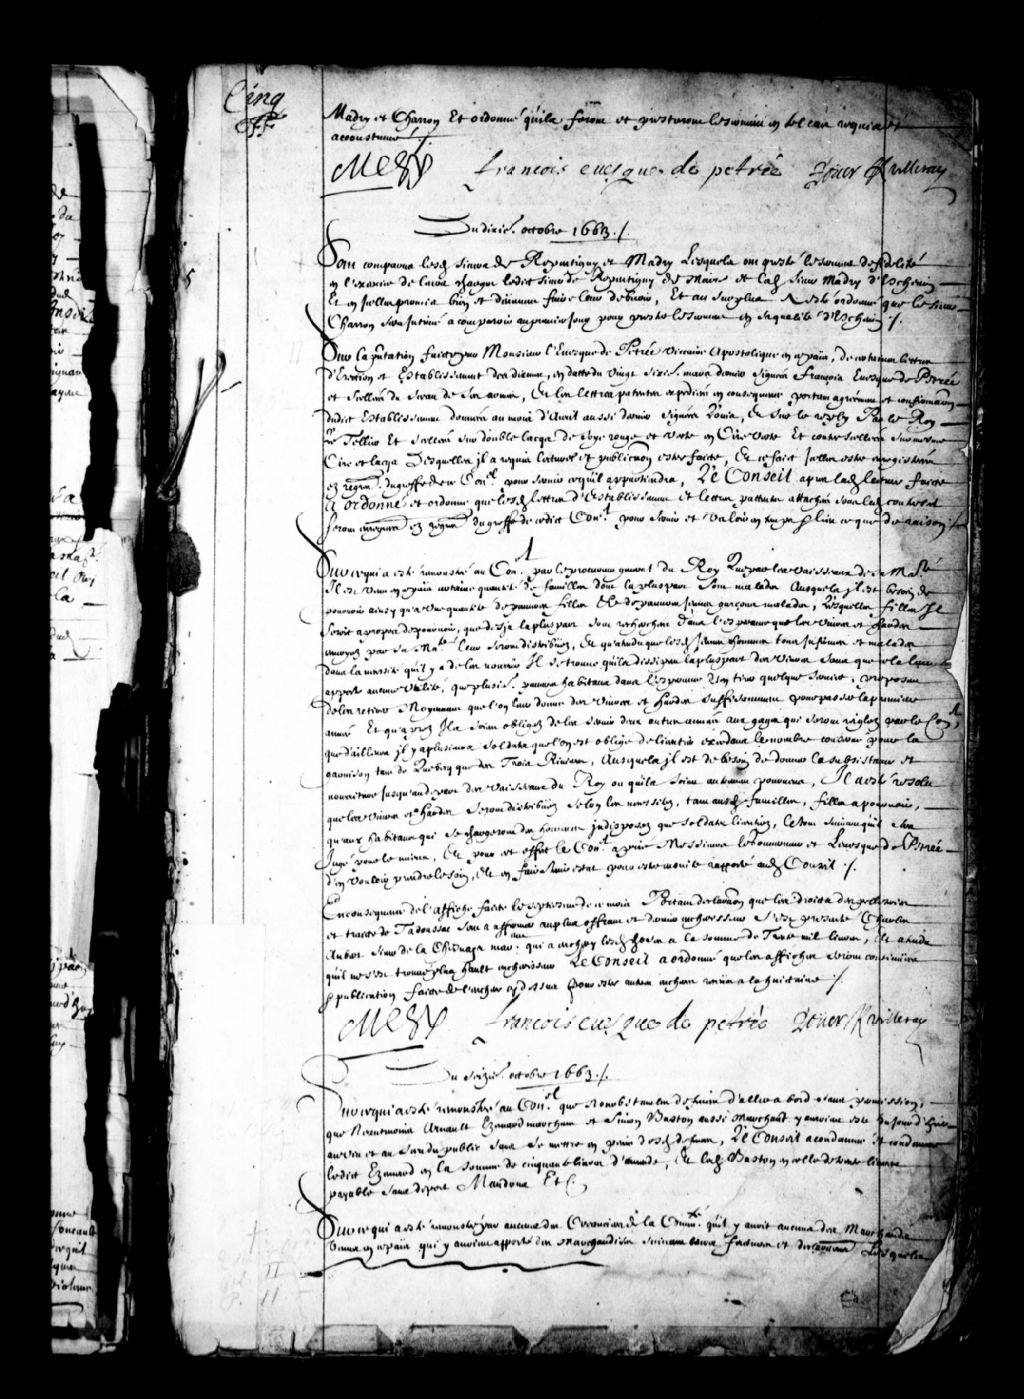 Cinq
Madry et Charron Et ordonné quils seront et presteront le serment en tel cas requis et
accoustumé /.
Mezy francois evesque de petrée Rouer Villeray
Du dixie. octobre 1663 /.
Sont comparus lesd. sieurs de Repentigny et Madry Lesquels ont presté le serment de fidelité
en l'exercice de leurs charges ledit sieur de Repentigny de Maire et led. sieur Madry d'Eschevin
Et en icelles promis bien et deument faire leur debvoir, Et au surplus a esté ordonné que le sieur
Charron sera intimé a comparoir au premier jour pour prester le serment en sa qualité d'Eschevin /.
Sur la réquisition faicte par Monsieur l'Evesque de Petrée Vicaire Apostolique en ce pais, de certaines lettres
d'Erection et Establissement des dixmes, en datte du vingt sixie. mars dernier Signées François Evesque de Petrée
et scellées du sceau de ses armes, Et les lettres patentes expediées en consequence portant agrement et confirmaon
dudit Establissement données au mois d'Avril aussi dernier Signées Louis, Et sur le reply Par le Roy
Le Tellier Et scellées sur double lacqs de soye rouge et verte en Cire verte Et contrescellées sur mesme
Cire et lacqs Desquelles il a requis lecture et publicaon estre faicte, Et ce faict icelles estre enregistrées
ez regres. du greffe de ce Conel. pour servir ce qu'il appartiendra, LE Conseil apres lad. lecture faicte
A ordonné et ordonne que lesd. lettres d'Establissement et lettres patentes attachées soubz led. contrescel
seront enregrées ez regres du greffe de cedit Conel. pour servir et valoir en temps et lieu ce que de raison /.
Sur ce qui a esté remonstré au Conel. par le procureur general du Roy Que par les vaisseaux de sa Maté.
Il est venu en ce pais certaine quantité de familles dont la pluspart sont malades Ausquels il est besoin de
pourvoir ainsy qu'a une quantité de pauvres filles Et de pauvres jeunes garçons malades, Lesquelles filles Il
seroit a propos de pourvoir, que desja la pluspart sont recherchées dans l'esperance que les vivres et hardes
envoyez par sa Maté. leur seront distribuez, Et qu'attendu que lesd. jeunes hommes tous infirmes et malades
dans la necessité qu'il y a de les nourrir Il se trouve qu'ils dissipent la pluspart des vivres sans que cela leur
apporte aucune utilité, que plusie. pauvres habitans dans l'esperance d'en tirer quelque service, proposent
de les retirer Moyennant que l'on leur donne des vivres et hardes suffisamment pour passer la premiere
année Et qu'apres Ils soient obligez de les servir deux autres années aux gages qui seront reglez par le Conel.,
que d'ailleurs il y a plusieurs soldats que l'on est obligé de licentier excedans le nombre convenu pour la
garnison tant de Quebecq que des Trois Rivieres, Ausquels il est de besoin de donner la subsistance et
nourriture jusqu'au depart des vaisseaux du Roy ou qu'ils soient autrement pourveus, Il a esté resolu
que les vivres et hardes seront distribuez selon les necessitez, tant ausd. familles, filles a pourvoir,
qu'aux habitans qui se chargeront des hommes indisposez que soldats licentiez, le tout suivant qu'il sera
Jugé pour le mieux, Et pour cet effet le Conel. a prié Messieurs le Gouverneur et L'evesque de Petrée
d'en vouloir prendre le soin, Et en faire leur estat pour estre ensuite rapporté aud. Conseil /.
En consequence de l'affiche faicte le septiesme de ce mois Portant declaraon que les droicts des pelleteries
et traicte de Tadoussac sont a affermer au plus offrant et dernier encherisseur S'est presenté Charles
Aubert sieur de la Chesnaye mar. qui a encheri lesd. choses a la somme de Trente mil livres, Et attendu
qu'il ne s'est trouvé plus hault encherisseur LE Conseil a ordonné que les affiches seront continuées
et publication faicte de l'enchere cy dessus pour estre autres encheres receues a la huictaine /.
Mezy francois evesque de petrée Rouer Villeray
Du seizie. octobre 1663 /.
Sur ce qui a esté remonstré au Conel. que Nonobstant les defenses d'aller a bord sans permission,
que Neantmoins Arnault Ezemard marchand et Simon Baston aussi Marchand y auroient esté
au mespris et au sceu du public sans se mettre en peine desd. defenses, LE Conseil a condamné et condamne
ledict Ezemard en la somme de cinquante livres d'amende, Et led. Baston en celle de trente livres
payable sans deport Mandons Etc.
Sur ce qui a esté remonstré par aucuns des Creanciers de la Commté. qu'il y avoit aucuns des Marchands
venus en ce pais qui y avoient apporté des Marchandises suivant leurs factures et Lesquelles